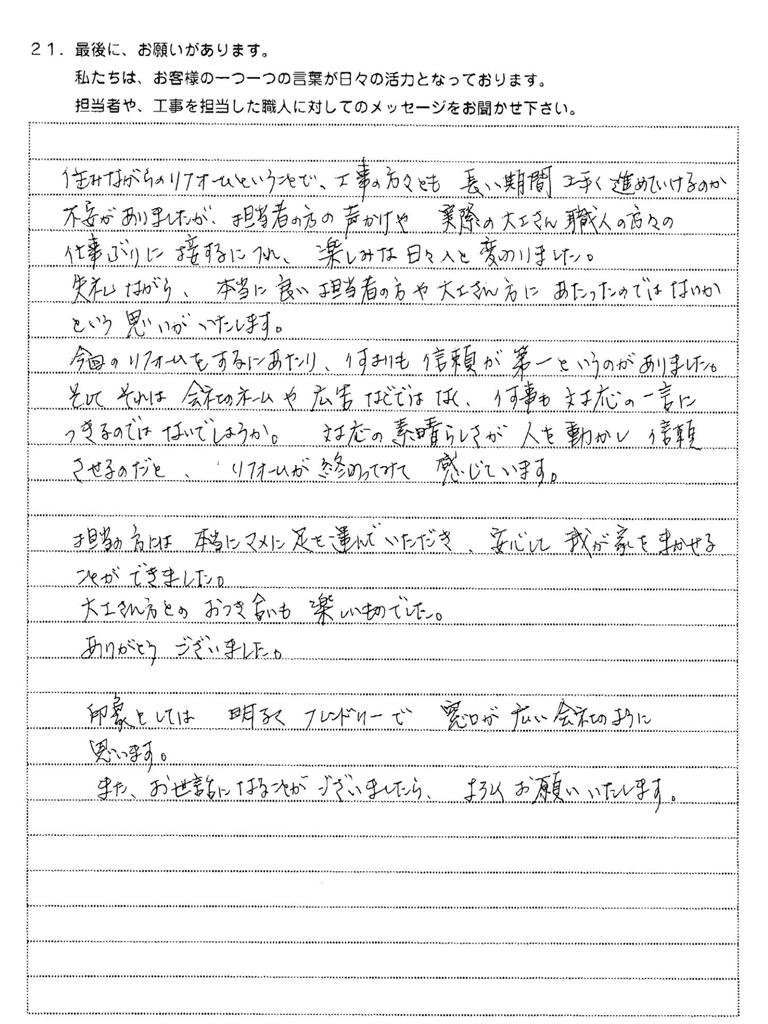 21．最後に、お願いがあります。
私たちは、お客様の一つ一つの言葉が日々の活力となっております。
担当者や、工事を担当した職人に対してのメッセージをお聞かせ下さい。
住みながらのリフォームということで、工事の方々とも 長い期間 上手く進めていけるのか
不安がありましたが、担当者の方の声かけや 実際の大工さん職人の方々の
仕事ぶりに接するにつれ、楽しみな日々へと変わりました。
失礼ながら、本当に良い担当者の方や大工さん方に あたったのではないか
という思いがいたします。
今回のリフォームをするにあたり、何よりも信頼が第一というのがありました。
そして それは 会社のネームや広告などではなく、何事も対応の一言に
つきるのではないでしょうか。 対応の素晴らしさが 人を動かし 信頼
させるのだと、リフォームが終わってみて 感じています。
担当の方には 本当にマメに足を運んでいただき、安心して我が家をまかせる
ことができました。
大工さん方との おつき合いも 楽しいものでした。
ありがとう ございました。
印象としては 明るく フレンドリーで 窓口が広い会社のように
思います。
また、お世話になることがございましたら、よろしくお願いいたします。